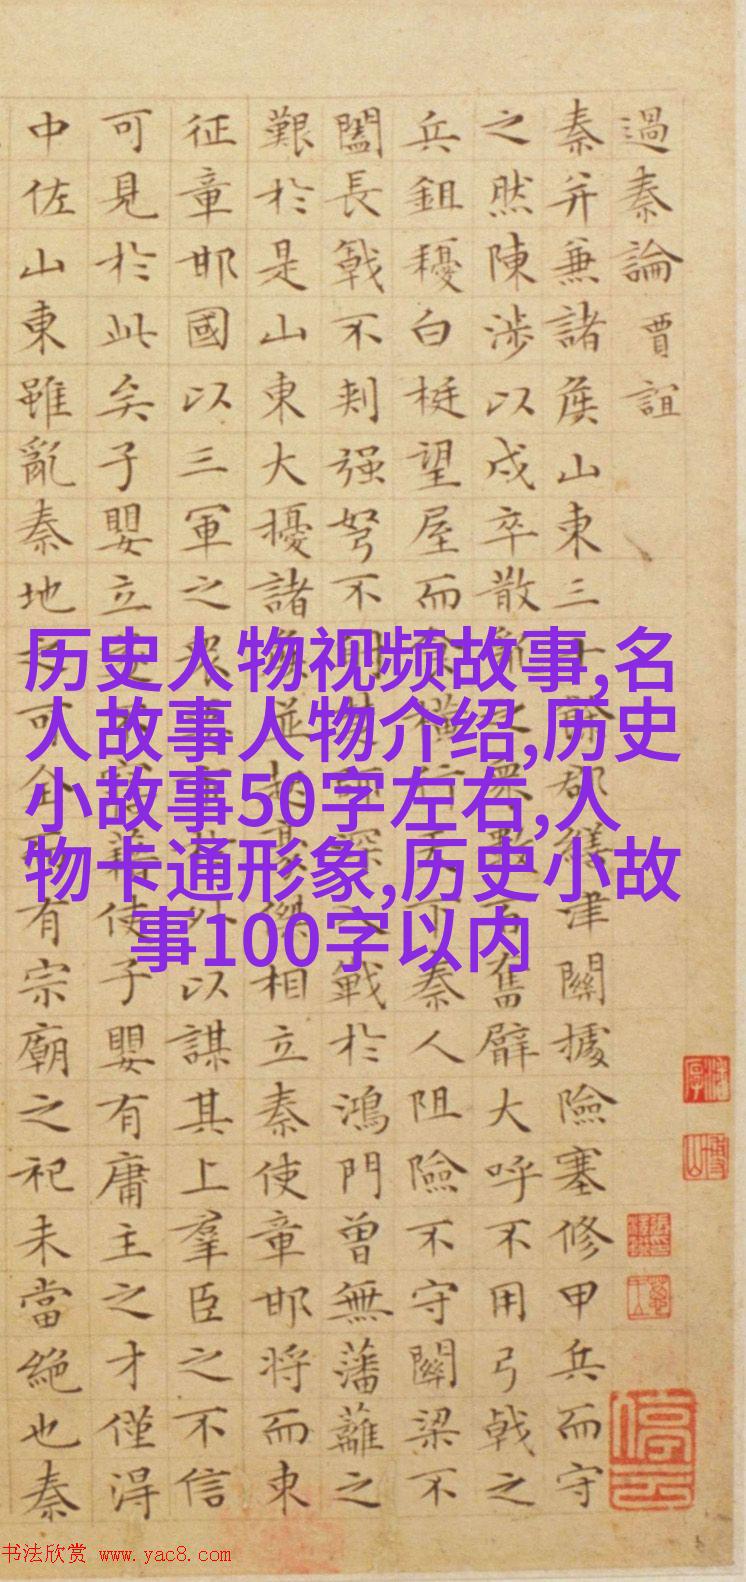 過秦論 賈誼
秦并兼諸侯山東三十餘郡繕津關據險塞修甲兵而守
之然陳涉以戍卒散亂之衆數百奮臂大呼不用弓戟之
兵鉏耰白梃望屋而食橫行天下秦人阻險不守關梁不
闔長戟不刺强弩不射楚師深入戰於鴻門曾無藩蘺之
艱於是山東大擾諸侯並起豪傑相立秦使章邯將而東
征章邯國以三軍之衆要市於外以謀其上羣臣之不信
可見於此矣子嬰立遂不寤藉使子嬰有庸主之才僅得
中佐山東雖亂秦地之可全而有宗廟之祀未當絶也秦
历史人物视频故事,名
人故事人物介绍,历史
小故事50字左右,人
物卡通形象,历史小故
事100字以内
书法欣赏 www.yac8.com